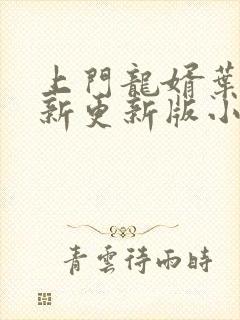 上門龍婿葉
新更新版小
青雲待雨時